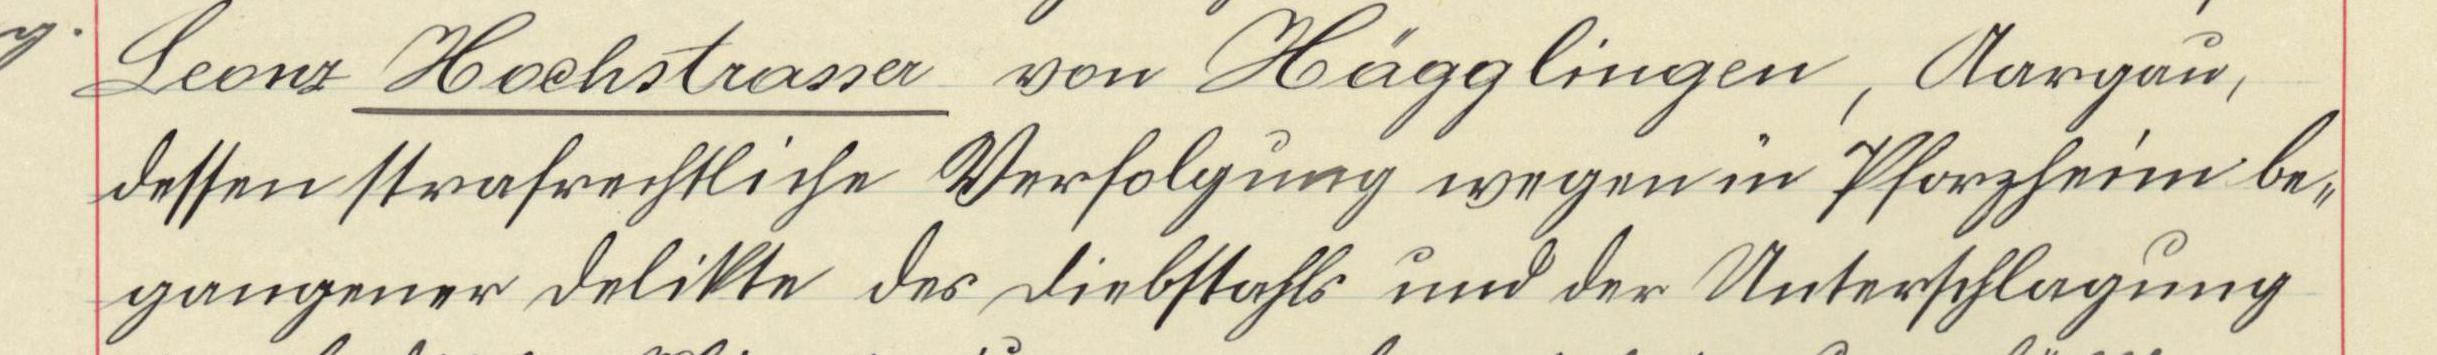 Leonz Hochstrasser von Hägglingen, Aargau,
dessen strafrechtliche Verfolgung wegen in Pforzheim be-
gangener Delikte des Diebstahls und der Unterschlagung